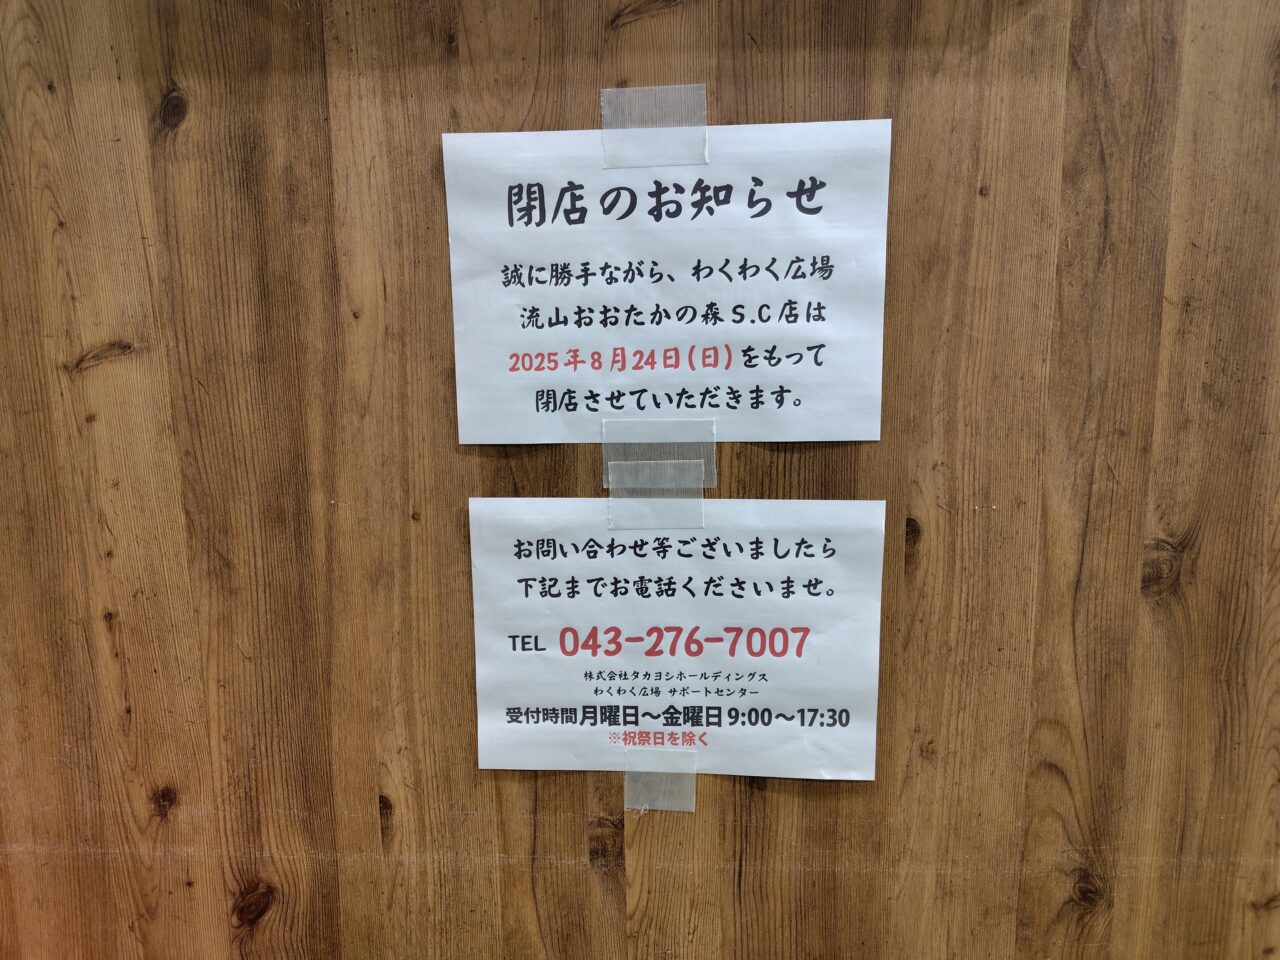 閉店のお知らせ
誠に勝手ながら、わくわく広場
流山おおたかの森S.C店は
2025年8月24日(日)をもって
閉店させていただきます。
お問い合わせ等ございましたら
下記までお電話くださいませ。
TEL 043-276-7007
株式会社タカヨシホールディングス
わくわく広場 サポートセンター
受付時間月曜日～金曜日9:00～17:30
※祝祭日を除く